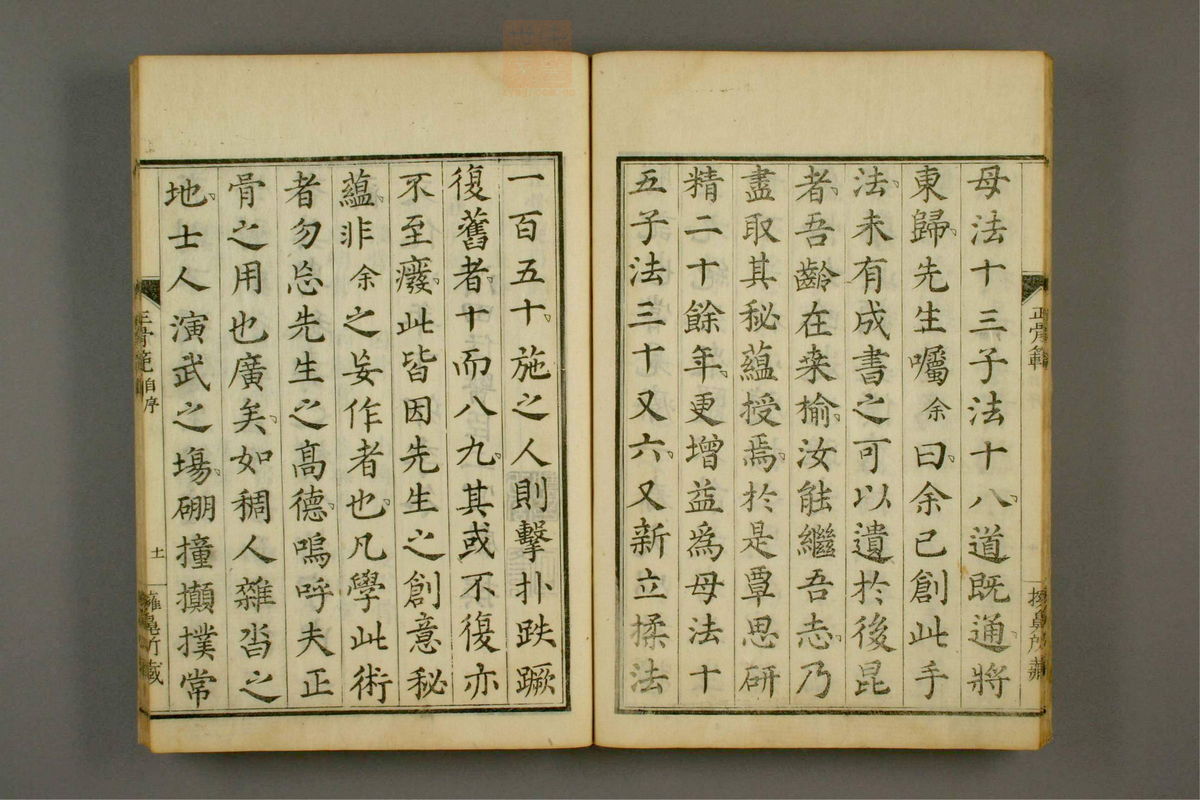 母法十三子法十八道既通將
東歸先生囑余曰余已創此手
法未有成書之可以遺於後昆
者吾齡在桒榆汝能繼吾志乃
盡取其秘蘊授焉於是覃思研
精二十餘年更增益爲母法十
五子法三十又六又新立揉法
一百五十施之人則擊扑跌蹶
復舊者十而八九其或不復亦
不至癈此皆因先生之創意秘
蘊非余之妄作者也凡學此術
者勿忘先生之高德嗚呼夫正
骨之用也廣矣如稠人雜沓之
地士人演武之塲硼撞攧撲常
正骨範
自序